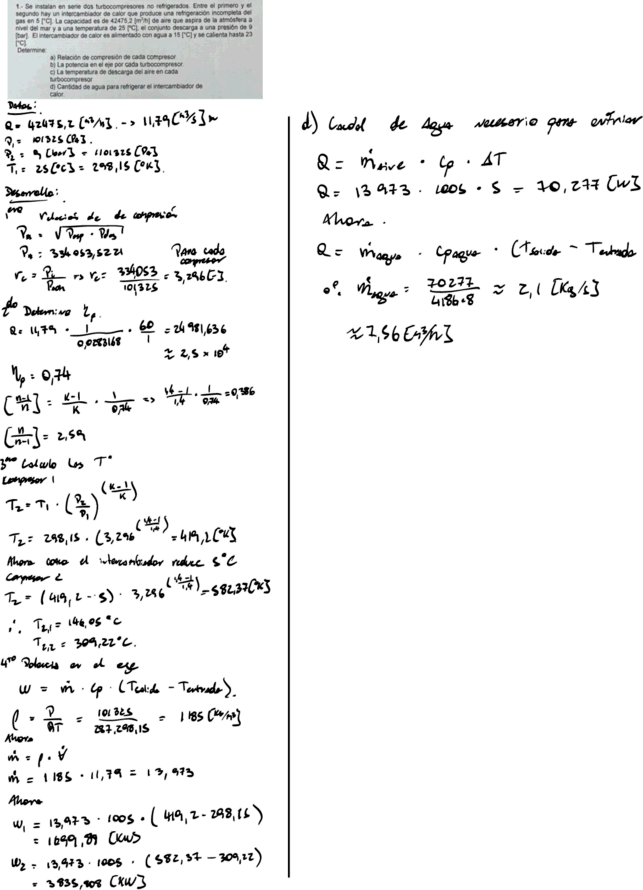 1.- Se instalan en serie dos turbocompresores no refrigerados. Entre el primero y el
segundo hay un intercambiador de calor que produce una refrigeración incompleta del
gas en 5 [°C]. La capacidad es de 42475,2 [m³/h] de aire que aspira de la atmósfera a
nivel del mar y a una temperatura de 25 [°C], el conjunto descarga a una presión de 9
[bar]. El intercambiador de calor es alimentado con agua a 15 [°C] y se calienta hasta 23
[°C].
Determine:
a) Relación de compresión de cada compresor
b) La potencia en el eje por cada turbocompresor.
c) La temperatura de descarga del aire en cada
turbocompresor
d) Cantidad de agua para refrigerar el intercambiador de
calor.
Datos:
Q = 42475,2 [m³/h] . -> 11,79 [m³/s]
P₁ = 101325 [Pa].
P₂ = 9 [bar] = 1101325 [Pa]
T₁ = 25 [°C] = 298,15 [°K].
Desarrollo:
1ero Relación de de compresión
= √
P = 334053,5221
Para cada
compresor
rc = => rc = 334053 / 101325 = 3,296 [-].
2do Determino ηp.
Q = 11,79 · 1/0,0283168 · 60/1 = 24981,636
≈ 2,5 × 10⁴
ηp = 0,74
[n-1/n] = K-1/K · 1/0,74 => 1,4-1/1,4 · 1/0,74 = 0,386
[n/n-1] = 2,59
3ero Calculo las T°
Compresor 1
T₂ = T₁ · (P₂/P₁)^(K-1/K)
T₂ = 298,15 · (3,296^(1,4-1/1,4)) = 419,2 [°K]
Ahora como el intercambiador reduce 5°C
Compresor 2
T₂ = (419,2 - 5) · 3,296^(1,4-1/1,4) = 582,37 [°K]
∴ T₂,₁ = 146,05 °C
T₂,₂ = 309,22 °C.
4to Potencia en el eje
W = ṁ · cp · (Tsalida - Tentrada).
ρ = P/RT = 101325 / 287,298,15 = 1185 [Kg/m³]
Ahora
ṁ = ρ · V̇
ṁ = 1185 · 11,79 = 13,973
Ahora
W₁ = 13,973 · 1005 · (419,2 - 298,15)
= 1699,89 [KW]
W₂ = 13,973 · 1005 · (582,37 - 309,22)
= 3835,808 [KW]
d) Caudal de Agua necesario para enfriar
Q = ṁaire · cp · ΔT
Q = 13973 · 1005 · 5 = 70,277 [W]
Ahora .
Q = ṁagua · cpagua · (Tsalida - Tentrada
∴ ṁagua = 70277 / 4186·8 ≈ 2,1 [Kg/s]
≈ 7,56 [m³/h]